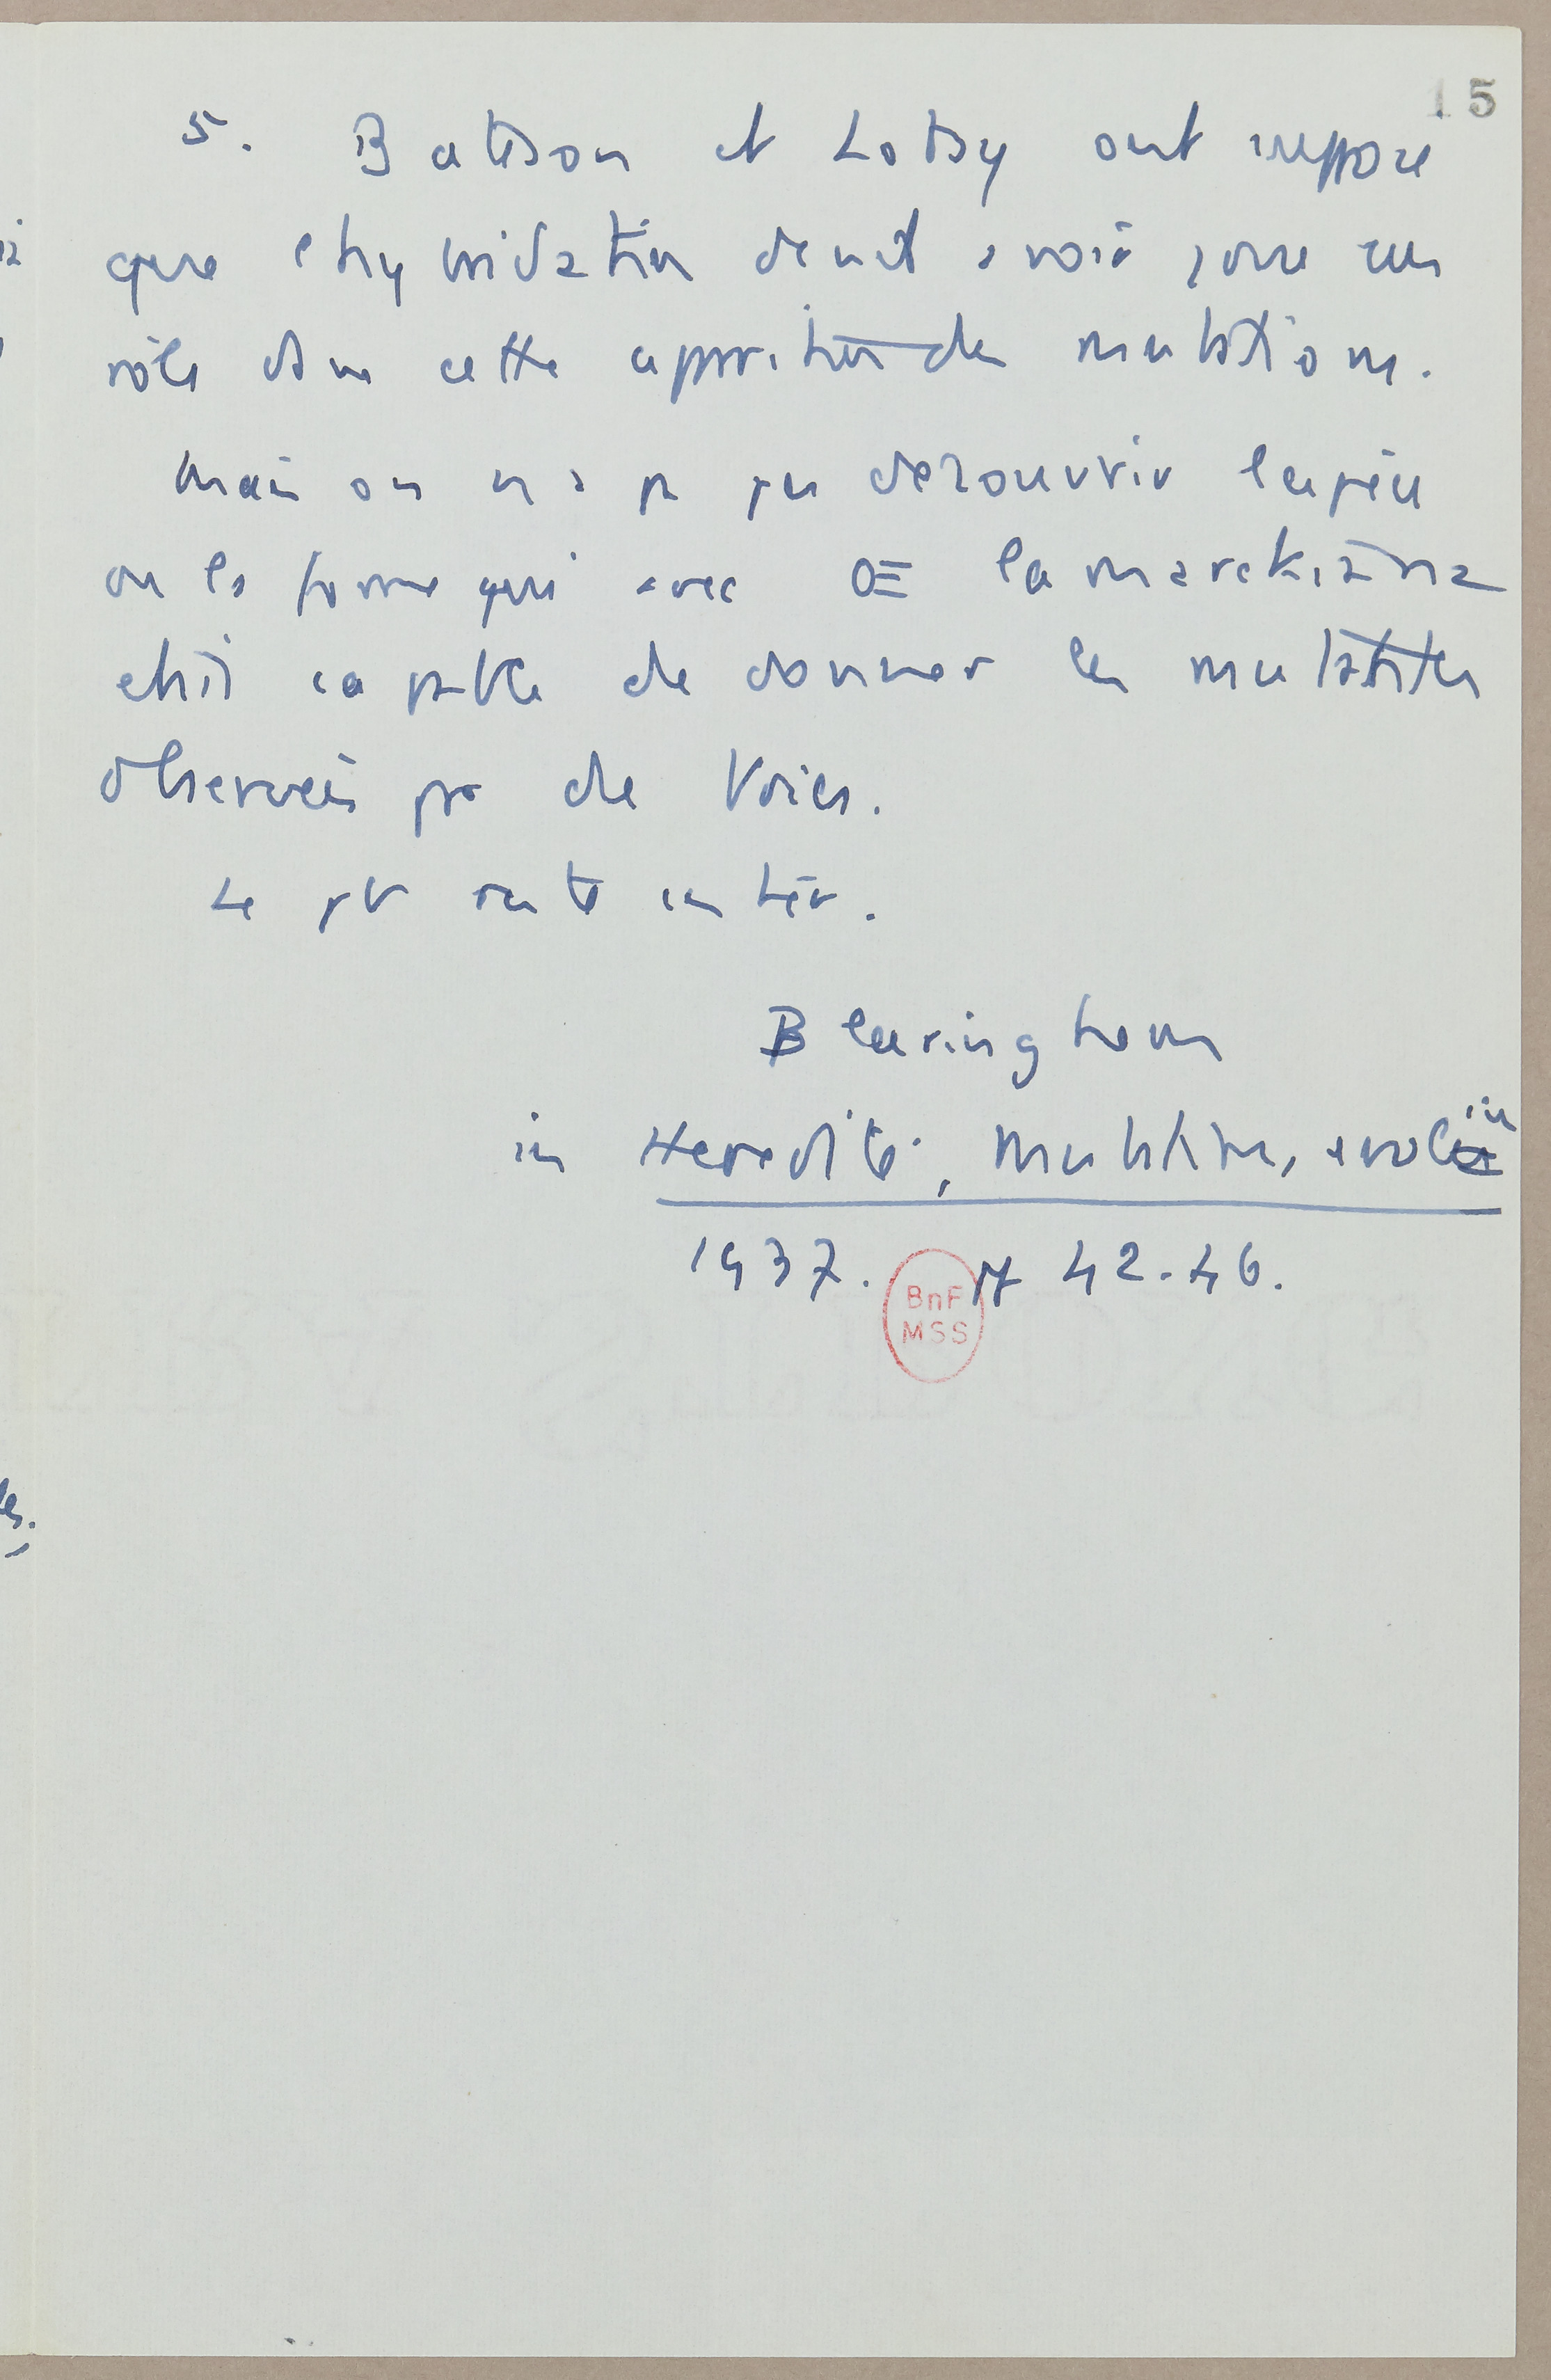 15
5. Bateson et Lotsy ont supposé
que l'hybridation devait avoir joué un
rôle dans cette apparition de mutations.
Mais on n'a pas pu découvrir l'espèce
ou la forme qui avec OE lamarckiana
était capable de donner les mutantes
observées par de Vries.
Le pb reste entier.
Blaringhem
in Hérédité, mutation, évolution
1937. pp 42-46.
BnF
MSS